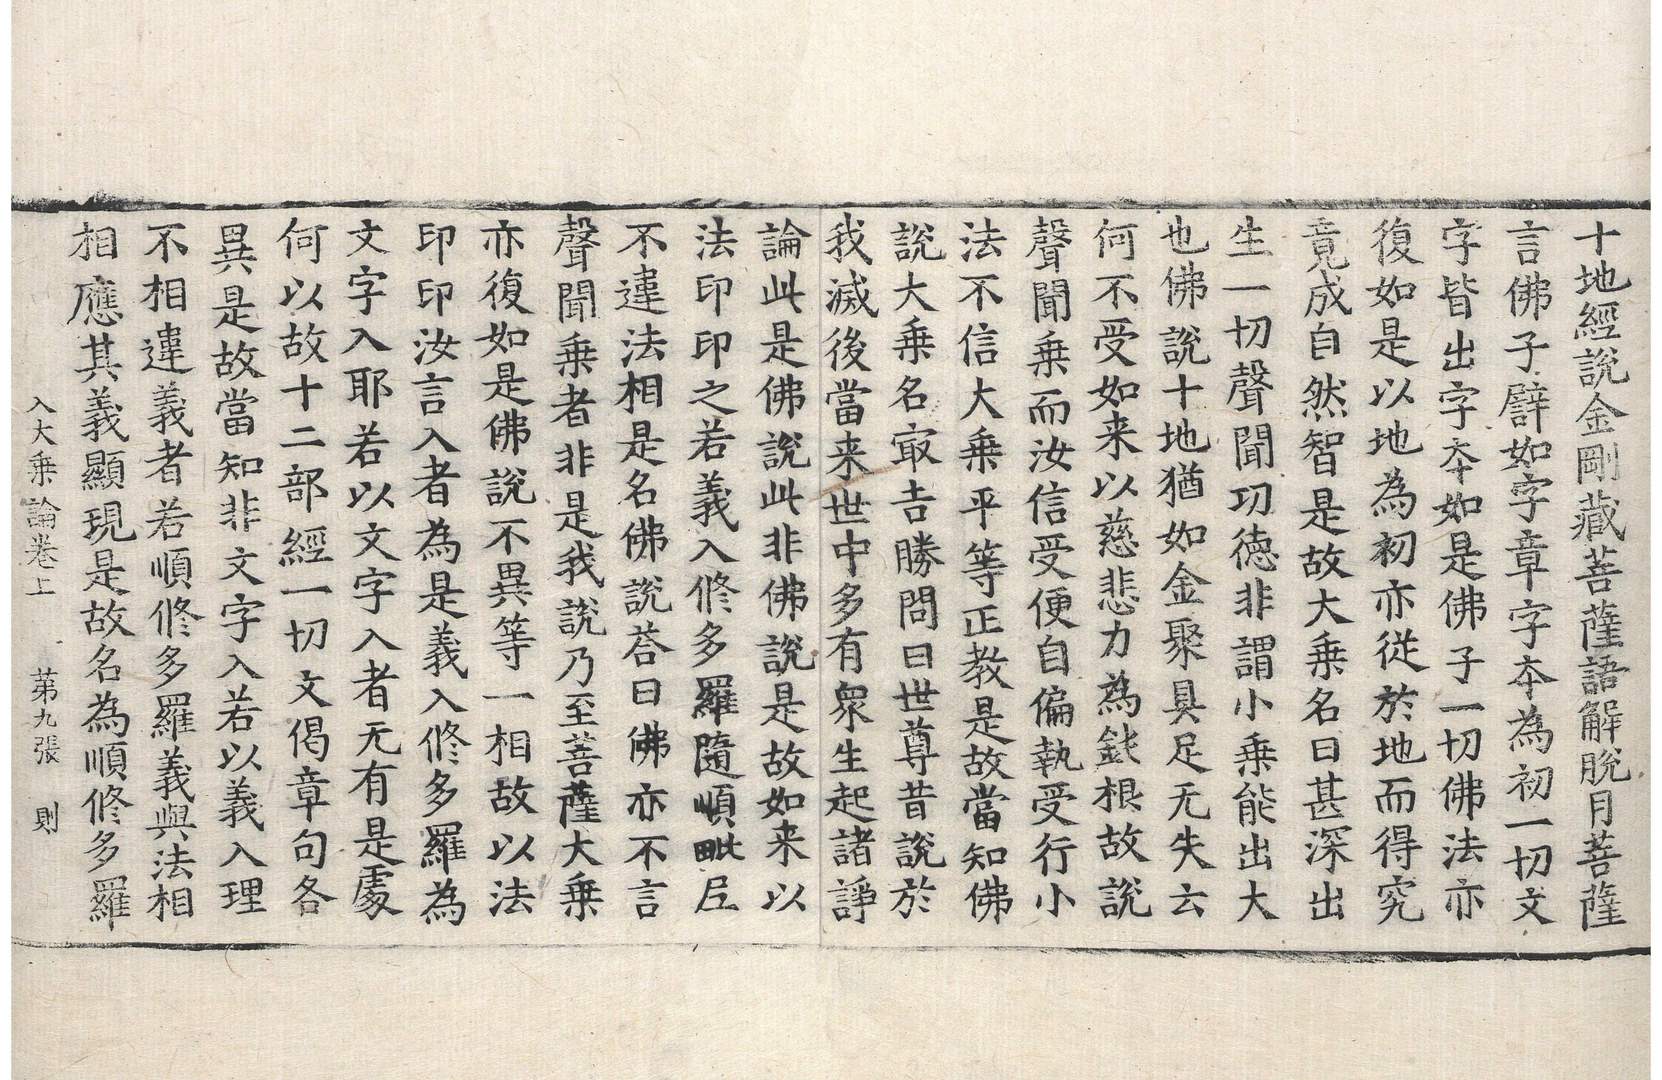 十地經說金剛藏菩薩語解脫月菩薩
言佛子譬如字章字夲為初一切文
字皆出字夲如是佛子一切佛法亦
復如是以地為初亦從於地而得究
竟成自然智是故大乗名曰甚深出
生一切聲聞㓛德非謂小乗能出大
也佛說十地猶如金聚具足无失云
何不受如来以慈悲力為鈋根故說
聲聞乗而汝信受便自偏執受行小
法不信大乗平等正教是故當知佛
說大乗名㝡吉勝問曰世尊昔說於
我滅後當来世中多有衆生起諸諍
論此是佛說此非佛說是故如来以
法印印之若義入修多羅隨順毗尼
不違法相是名佛說荅曰佛亦不言
聲聞乗者非是我說乃至菩薩大乗
亦復如是佛說不異等一相故以法
印印汝言入者為是義入修多羅為
文字入耶若以文字入者无有是處
何以故十二部經一切文偈章句各
異是故當知非文字入若以義入理
不相違義者若順修多羅義與法相
相應其義顯現是故名為順修多羅
入大乗論卷上　第九張　則